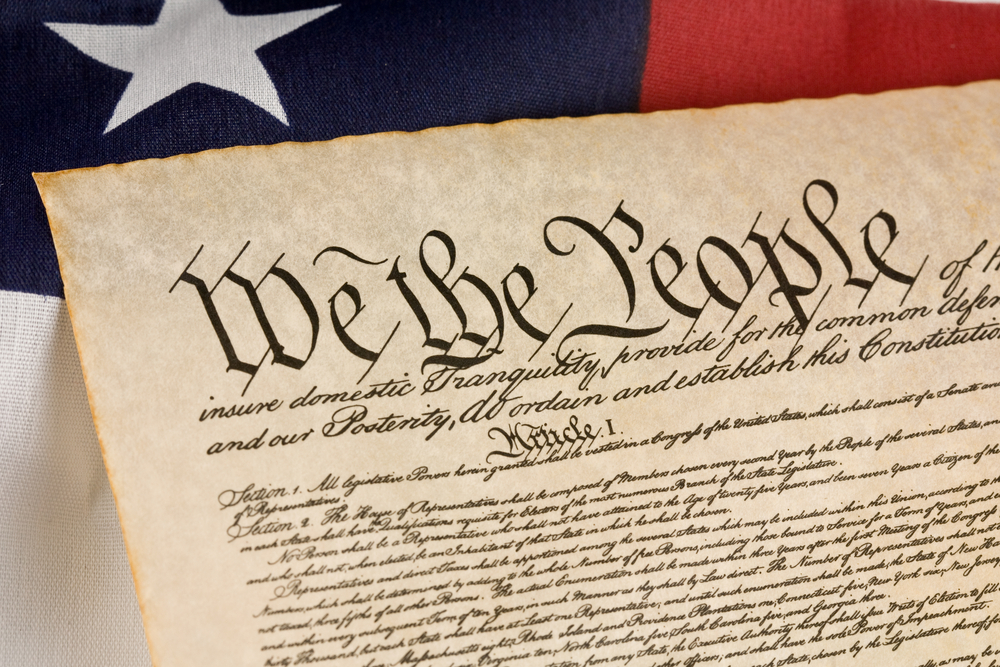 We the People of
insure domestic Tranquility, provide for the common defen
and our Posterity, do ordain and establish this Constitutio
Article. I.
Section. 1. All legislative Powers herein granted shall be vested in a Congress of the United States, which shall consist of a Senate and
of Representatives.
Section. 2. The House of Representatives shall be composed of Members chosen every second Year by the People of the several States, an
in each State shall have the Qualifications requisite for Electors of the most numerous Branch of the State Legislature.
No Person shall be a Representative who shall not have attained to the Age of twenty five Years, and been seven Years a Citizen of the
and who shall not, when elected, be an Inhabitant of that State in which he shall be chosen.
Representatives and direct Taxes shall be apportioned among the several States which may be included within this Union, according to th
Numbers, which shall be determined by adding to the whole Number of free Persons, including those bound to Service for a Term of Years, and
not taxed, three fifths of all other Persons. The actual Enumeration shall be made within three Years after the first Meeting of the Congress
and within every subsequent Term of ten Years, in such Manner as they shall by Law direct. The Number of Representatives shall not
thirty Thousand, but each State shall have at Least one Representative; and until such enumeration shall be made, the State of New Ha
Massachusetts eight, Rhode Island and Providence Plantations one, Connecticut five, New York six, New Jersey
Virginia ten, North Carolina five, South Carolina five, and Georgia three.
from any State, the Executive Authority thereof shall issue Writs of Election to fill
other Officers; and shall have the sole Power of Impeachment.
State, chosen by the Legislature thereof, fo